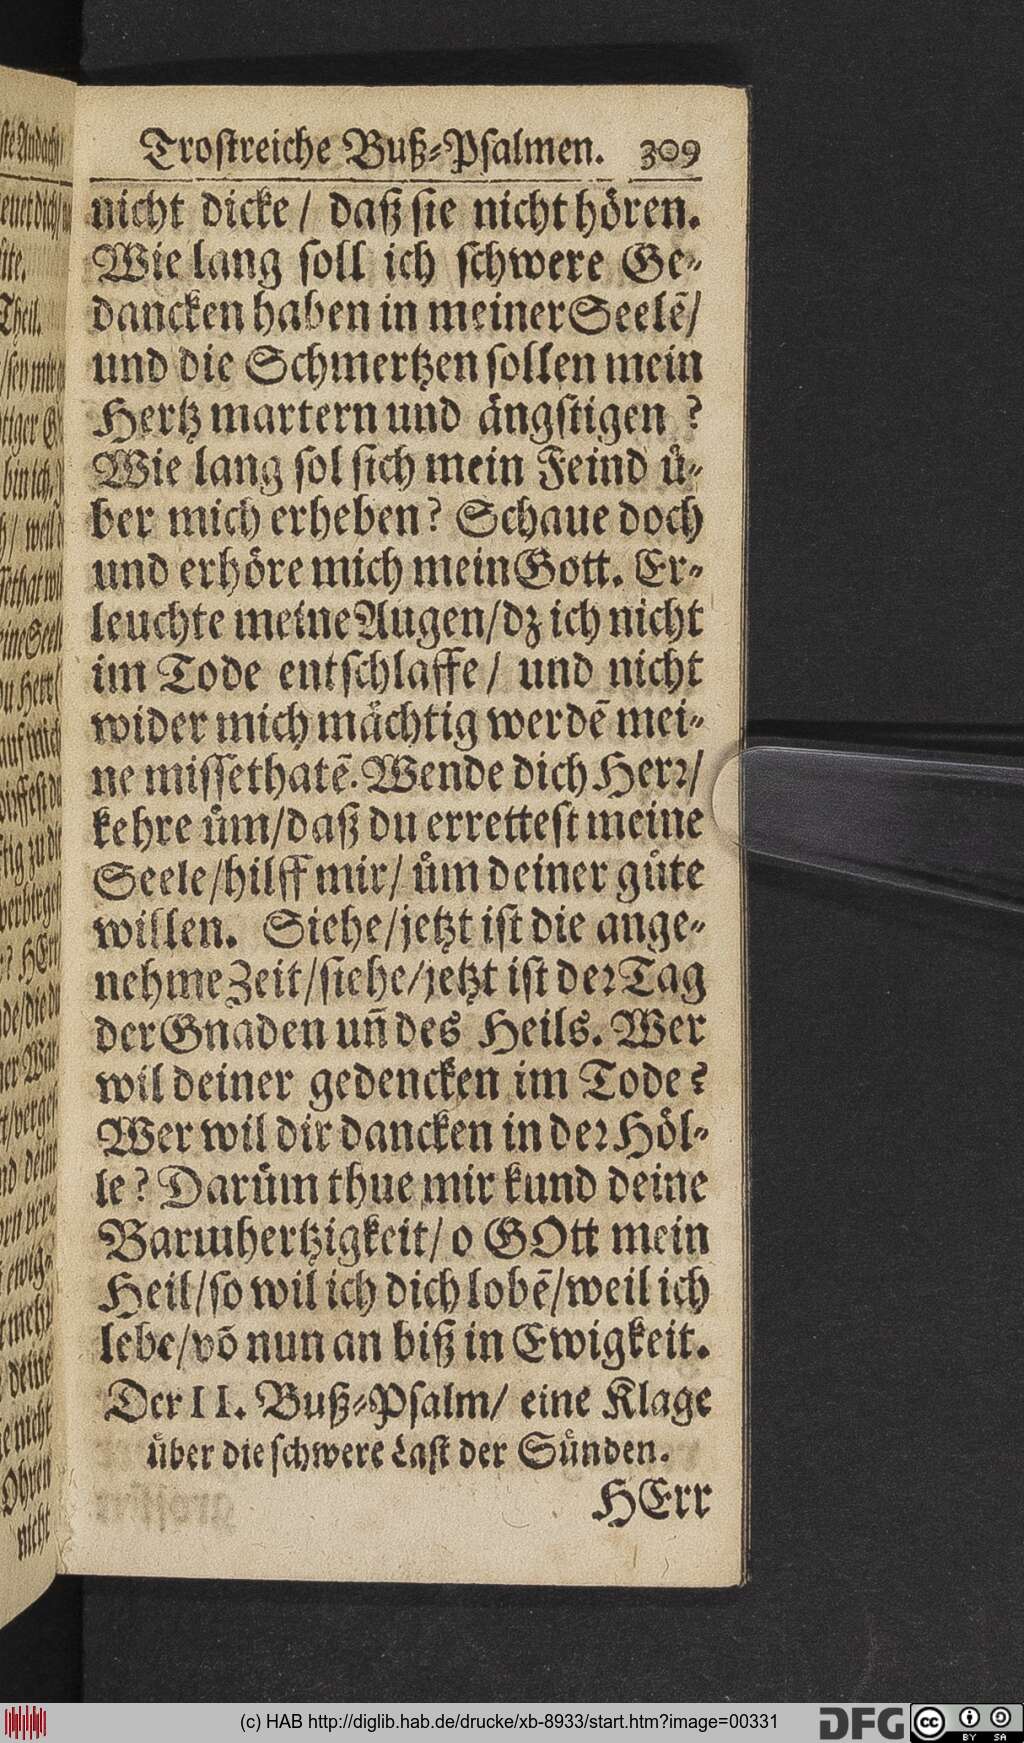 Trostreiche Buß-Psalmen. 309
nicht dicke / daß sie nicht hören.
Wie lang soll ich schwere Ge-
dancken haben in meiner Seelē/
und die Schmertzen sollen mein
Hertz martern und ängstigen ?
Wie lang sol sich mein Feind ü-
ber mich erheben? Schaue doch
und erhöre mich mein Gott. Er-
leuchte meine Augen/dz ich nicht
im Tode entschlaffe / und nicht
wider mich mächtig werdē mei-
ne missethatē. Wende dich Herr/
kehre üm/daß du errettest meine
Seele/hilff mir/ üm deiner güte
willen. Siehe/jetzt ist die ange-
nehme Zeit/siehe/jetzt ist der Tag
der Gnaden un̄ des Heils. Wer
wil deiner gedencken im Tode?
Wer wil dir dancken in der Höl-
le? Darüm thue mir kund deine
Barmhertzigkeit/ o GOtt mein
Heil/so wil ich dich lobē/weil ich
lebe/vō nun an biß in Ewigkeit.
Der II. Buß-Psalm/ eine Klage
über die schwere Last der Sünden.
HErr
(c) HAB http://diglib.hab.de/drucke/xb-8933/start.htm?image=00331
DFG
cc BY SA